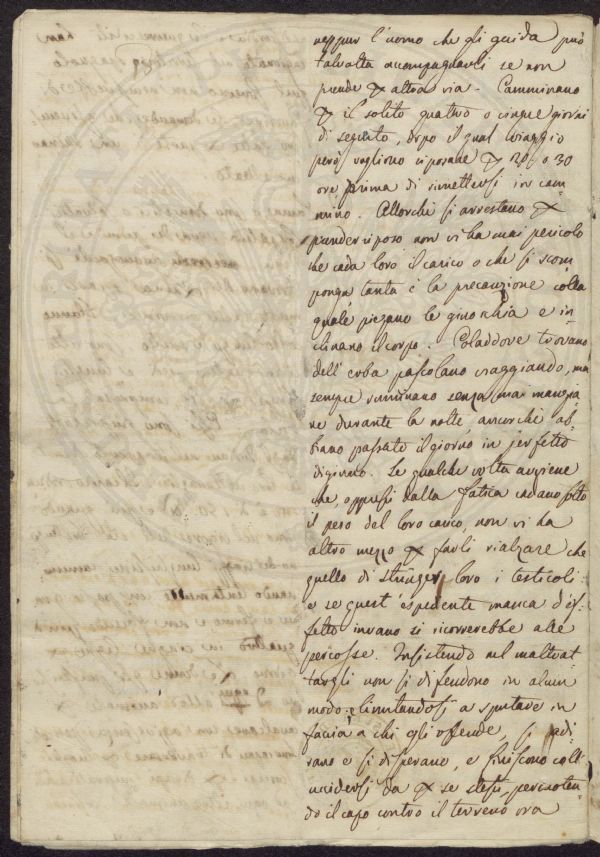 neppur l'uomo che gli guida può
talvolta accompagnarli se non
prende p altra via. Camminano
p il solito quattro o cinque giorni
di seguito, dopo il qual viaggio
però vogliono riposare p 20, o 30
ore prima di rimettersi in cam-
mino. Allorchè si arrestano p
prender riposo non vi ha mai pericolo
che cada loro il carico o che si scom-
ponga tanta è la precauzione colla
quale piegano le ginocchia e in-
clinano il corpo. Coladdove trovano
dell'erba pascolano viaggiando, ma
sempre ruminano senza mai mangia-
re durante la notte, ancorchè ab-
biano passato il giorno in perfetto
digiuno. Se qualche volta avviene
che, oppressi dalla fatica cadano sotto
il peso del loro carico, non vi ha
altro mezzo p farli rialzare che
quello di stringer loro i testicoli:
e se quest'espediente manca d'ef-
fetto invano si ricorrerebbe alle
percosse. Insistendo nel maltrat-
targli non si difendono in alcun
modo; e limitandosi a sputare in
faccia a chi gli offende, si adi-
rano e si disperano, e finiscono coll'
uccidersi da p se stessi, percuoten-
do il capo contro il terreno ora